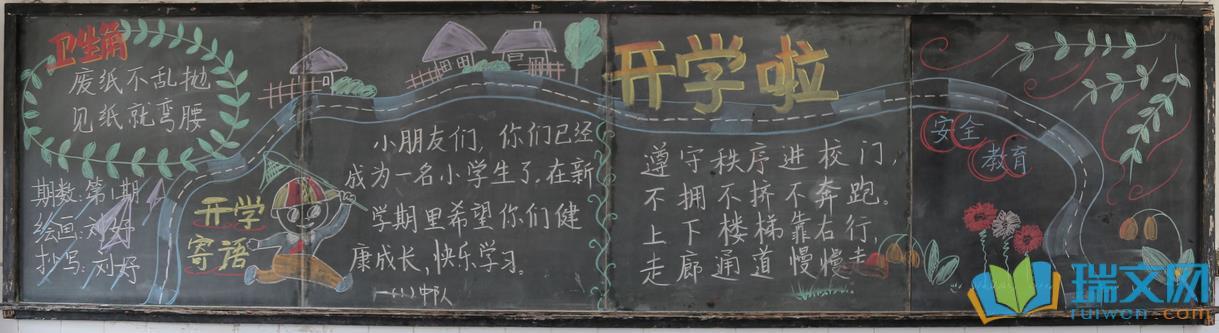 卫生角
废纸不乱抛
见纸就弯腰
期数:第1期
绘画:刘好
抄写:刘好
开学
寄语
小朋友们,你们已经
成为一名小学生了,在新
学期里希望你们健
康成长,快乐学习。
一(1)中队
开学啦
遵守秩序进校门,
不拥不挤不奔跑。
上下楼梯靠右行,
走廊通道慢慢走
安全
教育
瑞文网
ruiwen.com